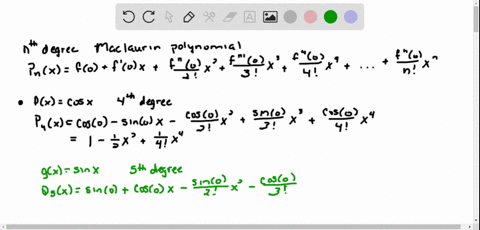 nth degree Maclaurin polynomial
Pn(x) = f(0) + f'(0)x + f''(0)/2! x² + f'''(0)/3! x³ + f⁴(0)/4! x⁴ + ... + fⁿ(0)/n! xⁿ
• P(x) = cosx 4th degree
P₄(x) = cos(0) - sin(0)x - cos(0)/2! x² + sin(0)/3! x³ + cos(0)/4! x⁴
= 1 - 1/2 x² + 1/4! x⁴
g(x) = sinx 5th degree
Q₅(x) = sin(0) + cos(0)x - sin(0)/2! x² - cos(0)/3!